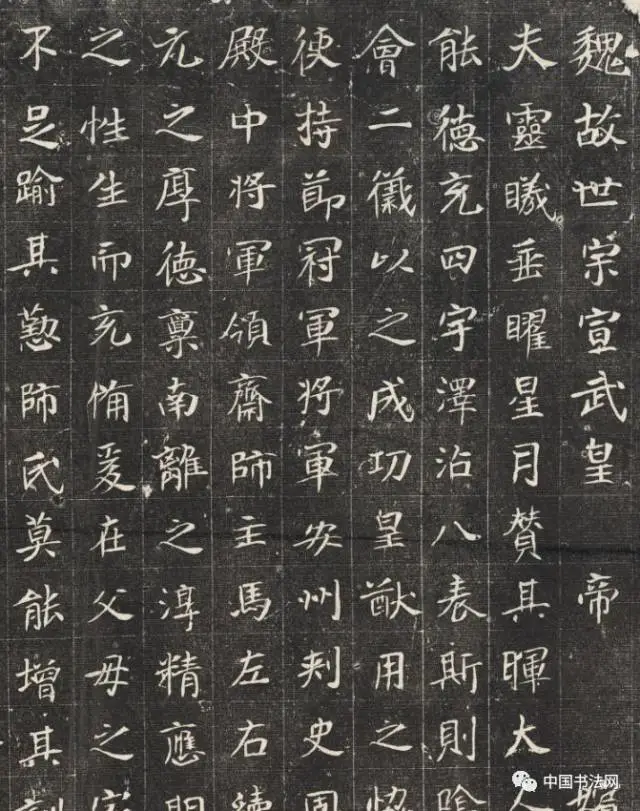 魏故世宗宣武皇帝嬪
夫靈曦垂曜星月贊其暉大人
能德充四宇澤沾八表斯則陰
會二儀以之成功皇猷用之恊
使持節冠軍將軍安州刾史固
殿中將軍領齋師主馬左右續
元之厚德稟南離之淳精應
之性生而充俻爰在父母之
不足踰其懃師氏莫能增其
中国书法网